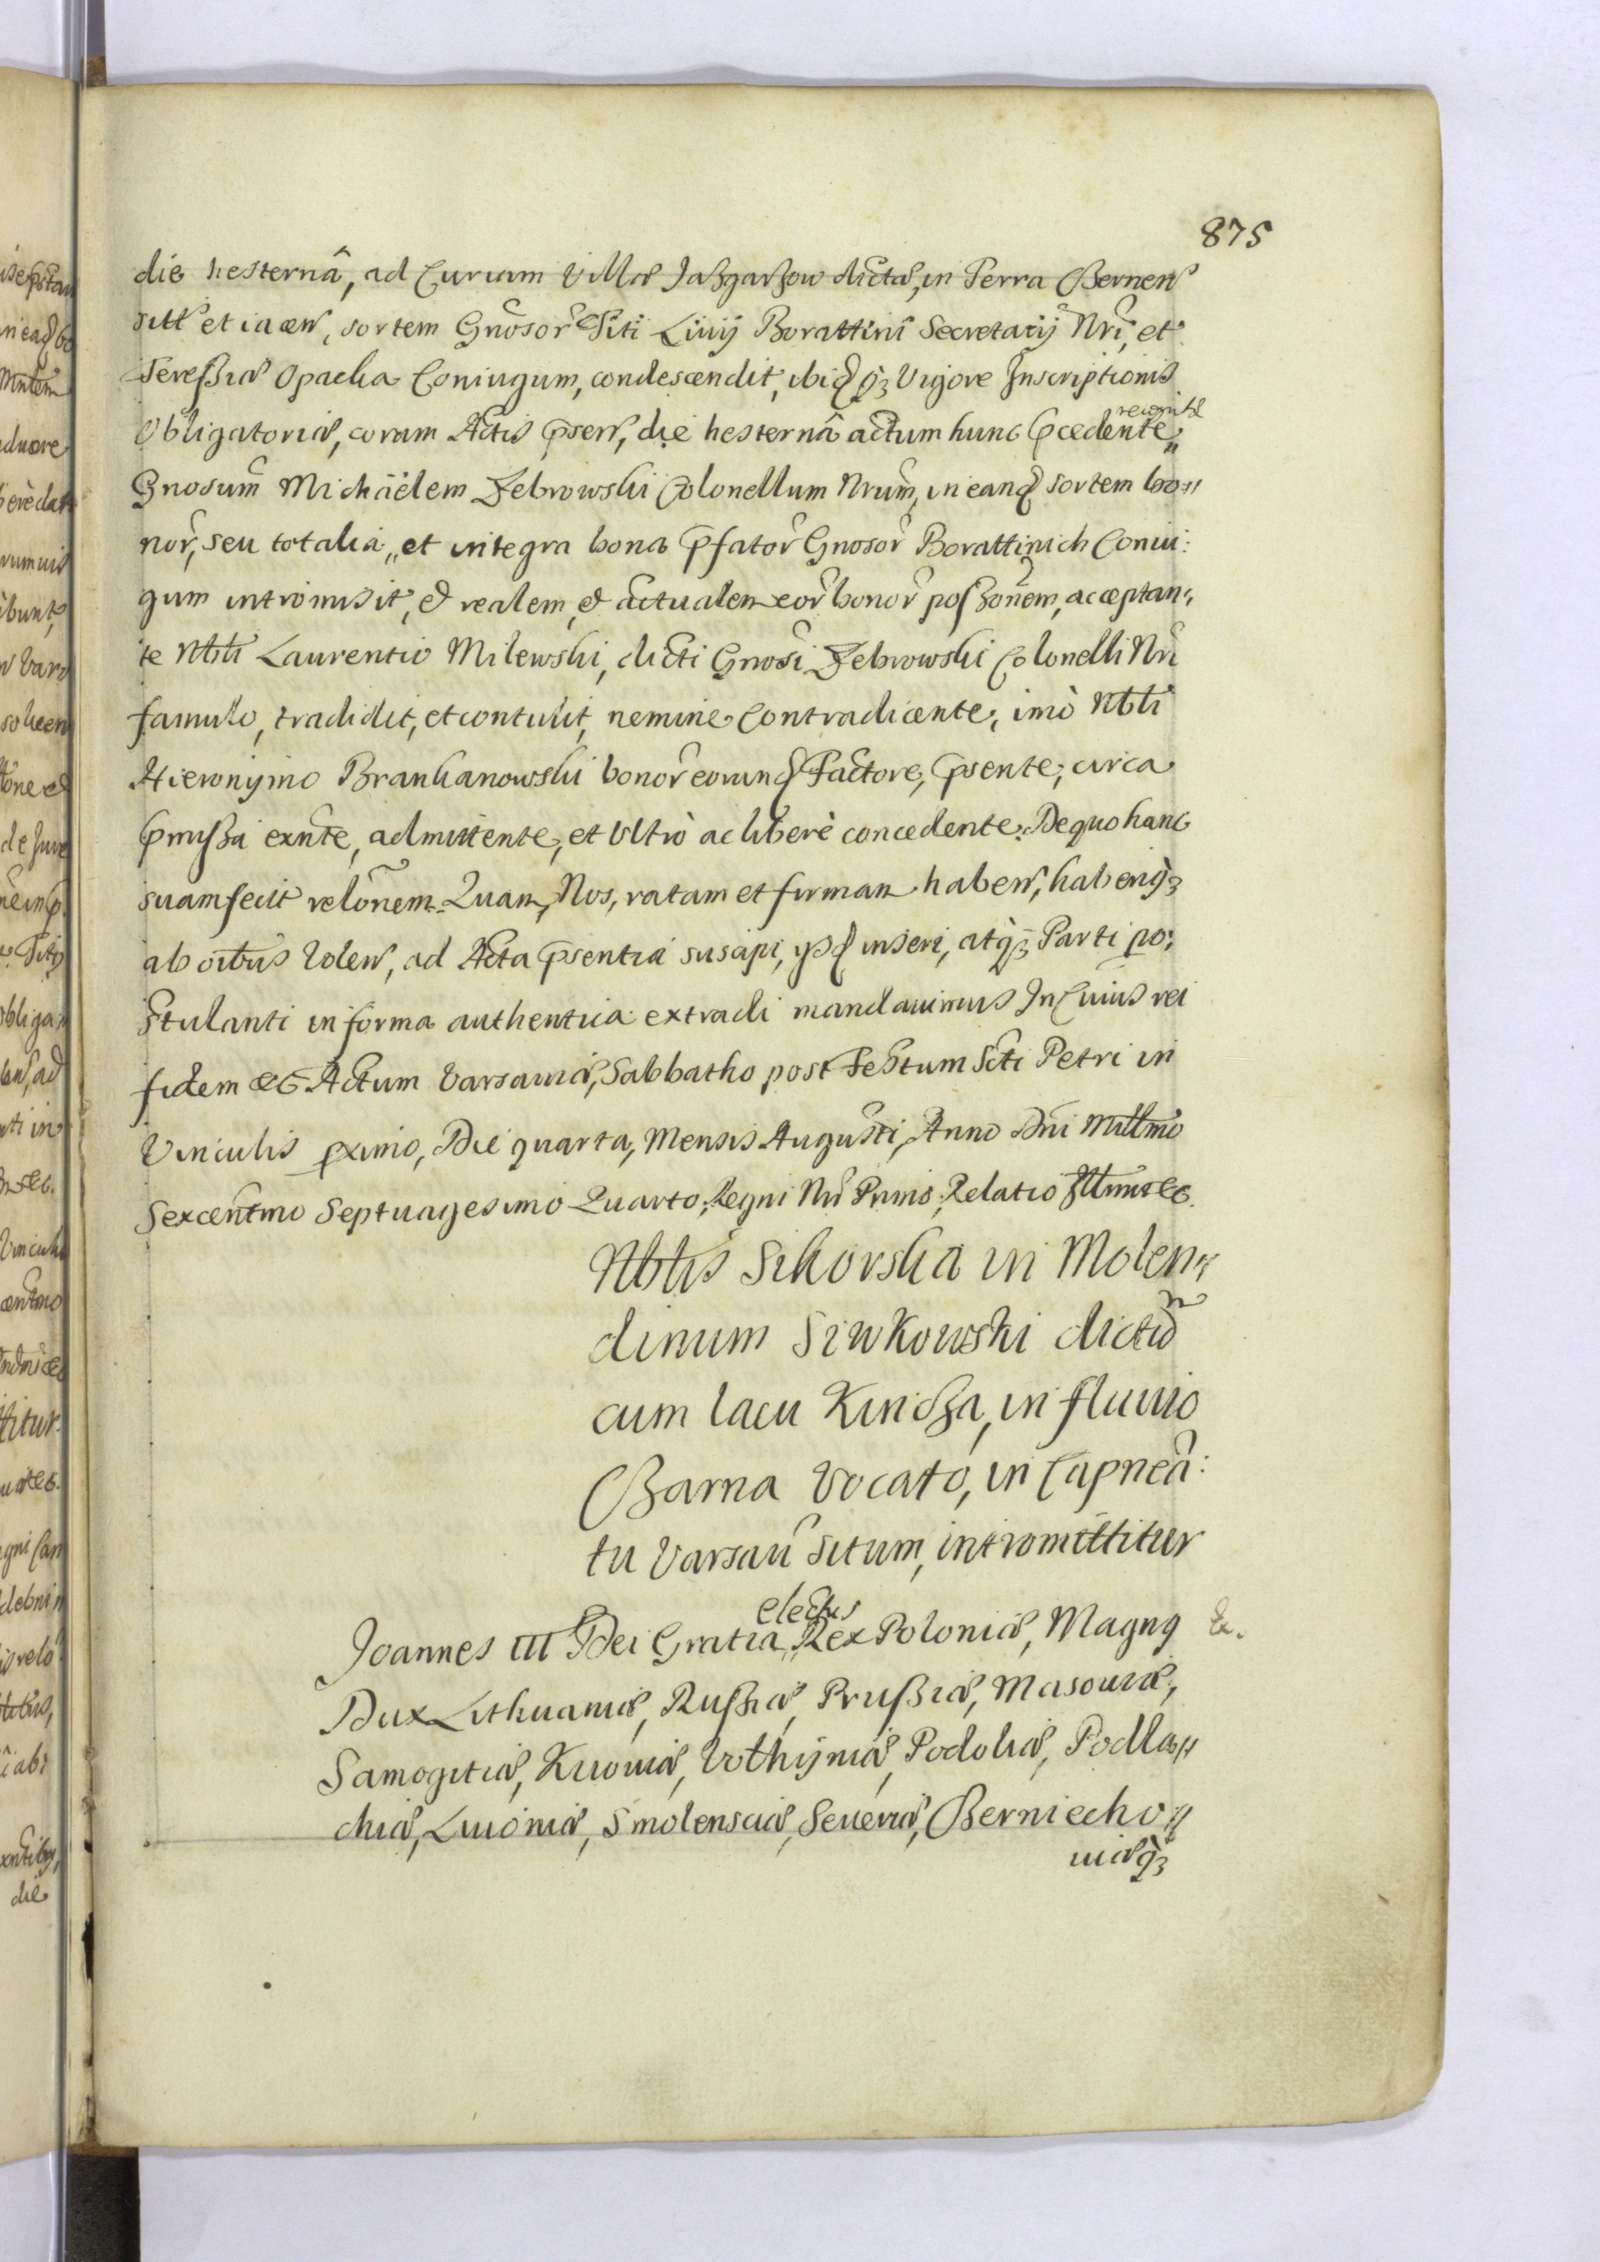 875
die hesternâ, ad Curiam Villæ Jazgarzow dictæ, in Terra Czernen
sitt et iacen, sortem Gnosor Titi Liuij Borattini Secretarij Nri, et
Teressiæ Opacka Coniugum, condescendit, ibidq3 Vigore Inscriptionis
recognit
Obligatoriæ, coram Actis pnsen, die hesternâ actum hunc pcedente,,
Gnosum Michäelem Zebrowski Colonellum Nrum, in eand sortem bo,,
nor, seu totalia,, et integra bona pfator Gnosor Borattinich Coniu:
gum intromisit, et realem, et actualem eor bonor possionem, acceptan,,
te Nbli Laurentio Milewski, dicti Gnosi Zebrowski Colonelli Nri
famulo, tradidit, et contulit, nemine Contradicente, imò Nbli
Hieronijmo Brankanowski bonor eorund Factore, psente, circa
pmissa exnte, admittente, et Ultrò ac liberè concedente. De quo hanc
suam fecit relonem. Quam, Nos, ratam et firmam haben, haberiq3
ab oibus Volen, ad Acta psentia suscipi, ijsd inseri, atq3 Parti po:
stulanti in forma authentica extradi mandauimus In Cuius rei
fidem etc Actum Varsauiæ, Sabbatho post Festum Scti Petri in
Vinculis pximo, Die quarta, Mensis Augusti, Anno Dni Millmo
Sexcentmo Septuagesimo Quarto, Regni Nri Primo, Relatio Illmi etc.
Nblis Sikorska in Molen,,
dinum Siwkowski dictu
m
cum lacu Kincza, in fluuio
Czarna Vocato, in Capnea:
tu Varsau Situm, intromittitur
electus
Joannes III Dei Gratia,, Rex Poloniæ, Magng Ex.
Dux Lithuaniæ, Russiæ, Prussiæ, Masouiæ,
Samogitiæ, Kiiouiæ, Volhijniæ, Podoliæ, Podla,,
chiæ, Liuoniæ, Smolensciæ, Seueriæ, Czerniecho,,
uiæq3